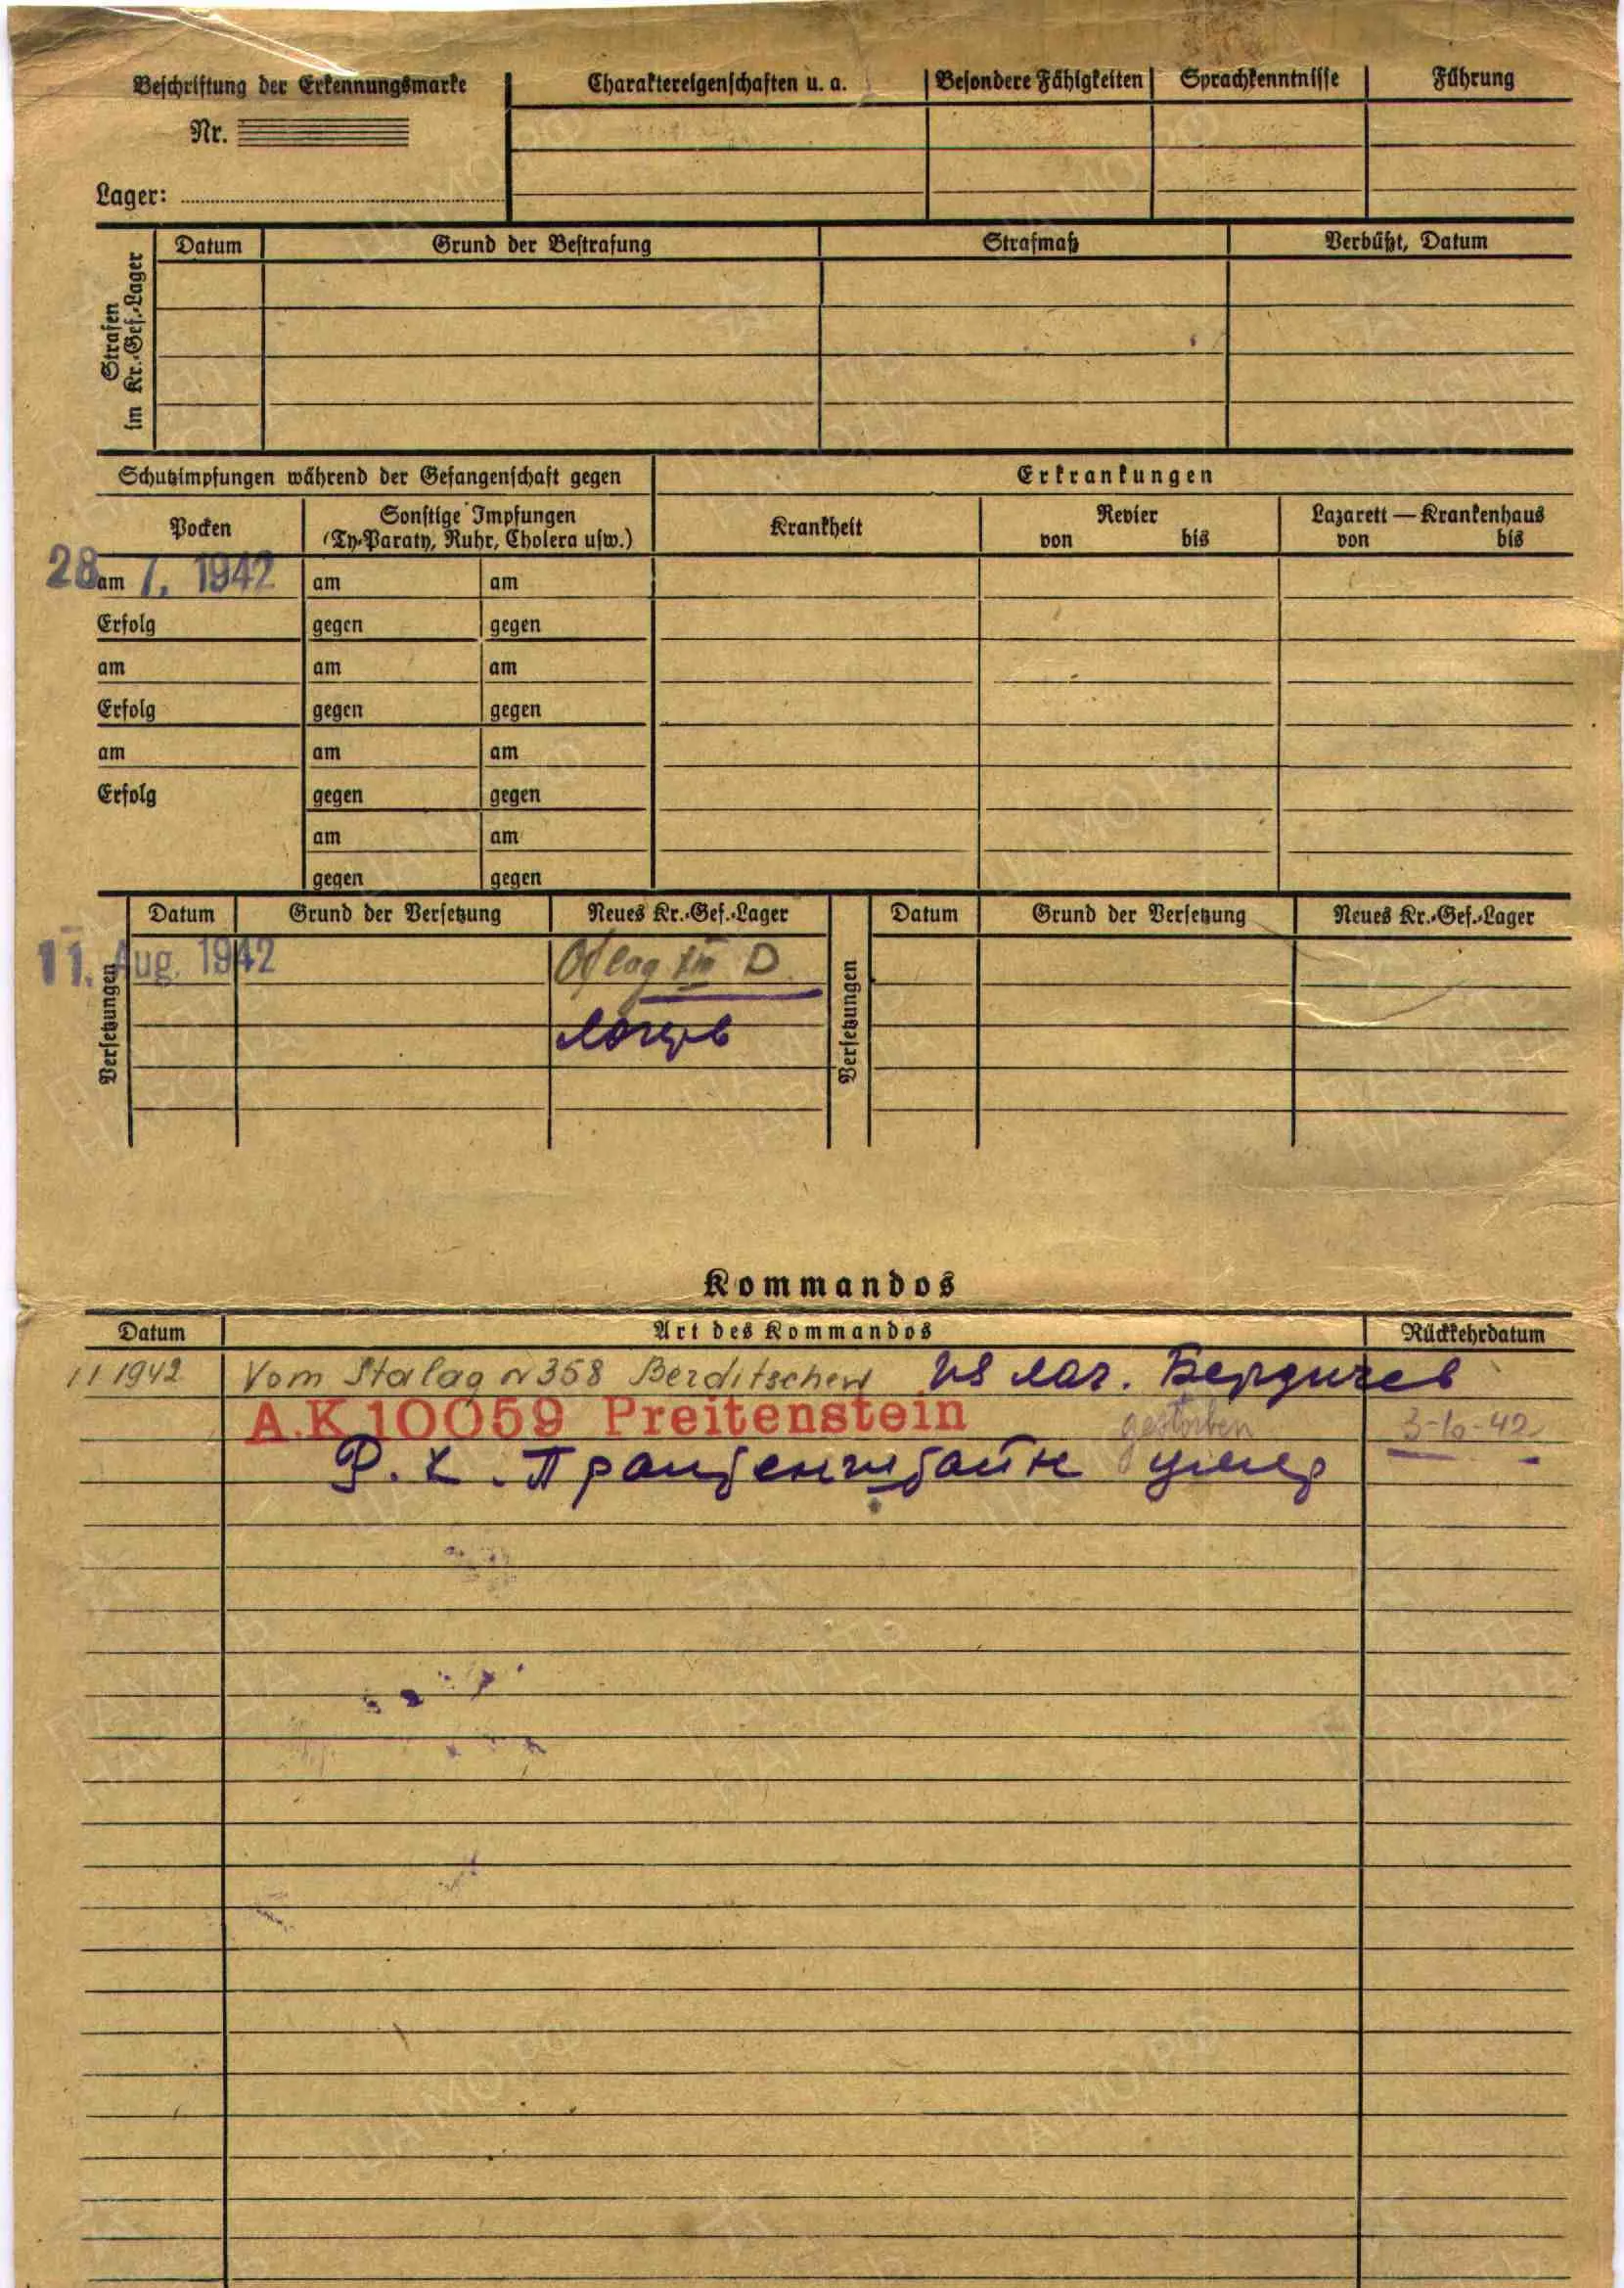 Beschriftung der Erkennungsmarke
Nr.
Lager:
Charaktereigenschaften u. a.
Besondere Fähigkeiten
Sprachkenntnisse
Führung
Strafen
im Kr.-Gef.-Lager
Datum
Grund der Bestrafung
Strafmaß
Verbüßt, Datum
Schutzimpfungen während der Gefangenschaft gegen
Erkrankungen
Pocken
Sonstige Impfungen
(Ty.-Paraty, Ruhr, Cholera usw.)
Krankheit
Revier
von bis
Lazarett — Krankenhaus
von bis
28 am 7. 1942 am am
Erfolg gegen gegen
am am am
Erfolg gegen gegen
am am am
Erfolg gegen gegen
am am
gegen gegen
Versetzungen
Datum Grund der Versetzung Neues Kr.-Gef.-Lager
11. Aug. 1942 Oflag XIII D
лагерь
Versetzungen
Datum Grund der Versetzung Neues Kr.-Gef.-Lager
Kommandos
Datum Art des Kommandos Rückkehrdatum
1942 Vom Stalag N 358 Berditschew из лаг. Бердичев
A.K 10059 Preitenstein gestorben 3-10-42
Р.К. умер
ПАМЯТЬ
НАРОДА
ЦАМО РФ